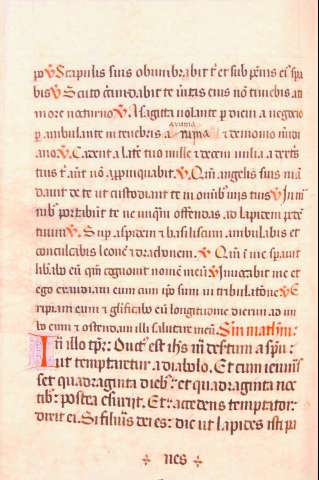 po. V Scapulis suis obumbrabit t' et sub pēnis ei' spa
bis V Scuto circūdabit te ūitas eius nō timebis an
more nocturno V. A sagitta volante per diem a negocio
p ambulante in tenebris a ruina & demonio meridi
ano V. Cadent a late' tuo mille & decem milia a dextis
tuis t' aūt nō appinquabit. V. Qm̄ angelis suis mā
davit de te ut custodiant te in omib' viis tuis V In mā
nib' portabunt te ne unquā offendas ad lapidem pede
tuum V. Sup aspidem & basiliscum ambulabis et
conculcabis leonē & draconem. V Qm̄ ī me spavit
libābo eū qm̄ cognovit nomē meū V Invocabit me et
ego exaudiam eum cum ipso sum in tribulatōne V E
ripiam eum & glificabo eū longitudine dierum ad im
bo eum & ostendam illi salutare meū. Sm matheū:
In illo tp̄r: Duct' est ihs in desertum a spū:
ut temptaretur a diabolo. Et cum ieiunas
set quadraginta dieb': et quadraginta noc
tib': postea esuriit. Et accedens temptator:
dixit ei. Si filius dei es: dic ut lapides isti pa
nes